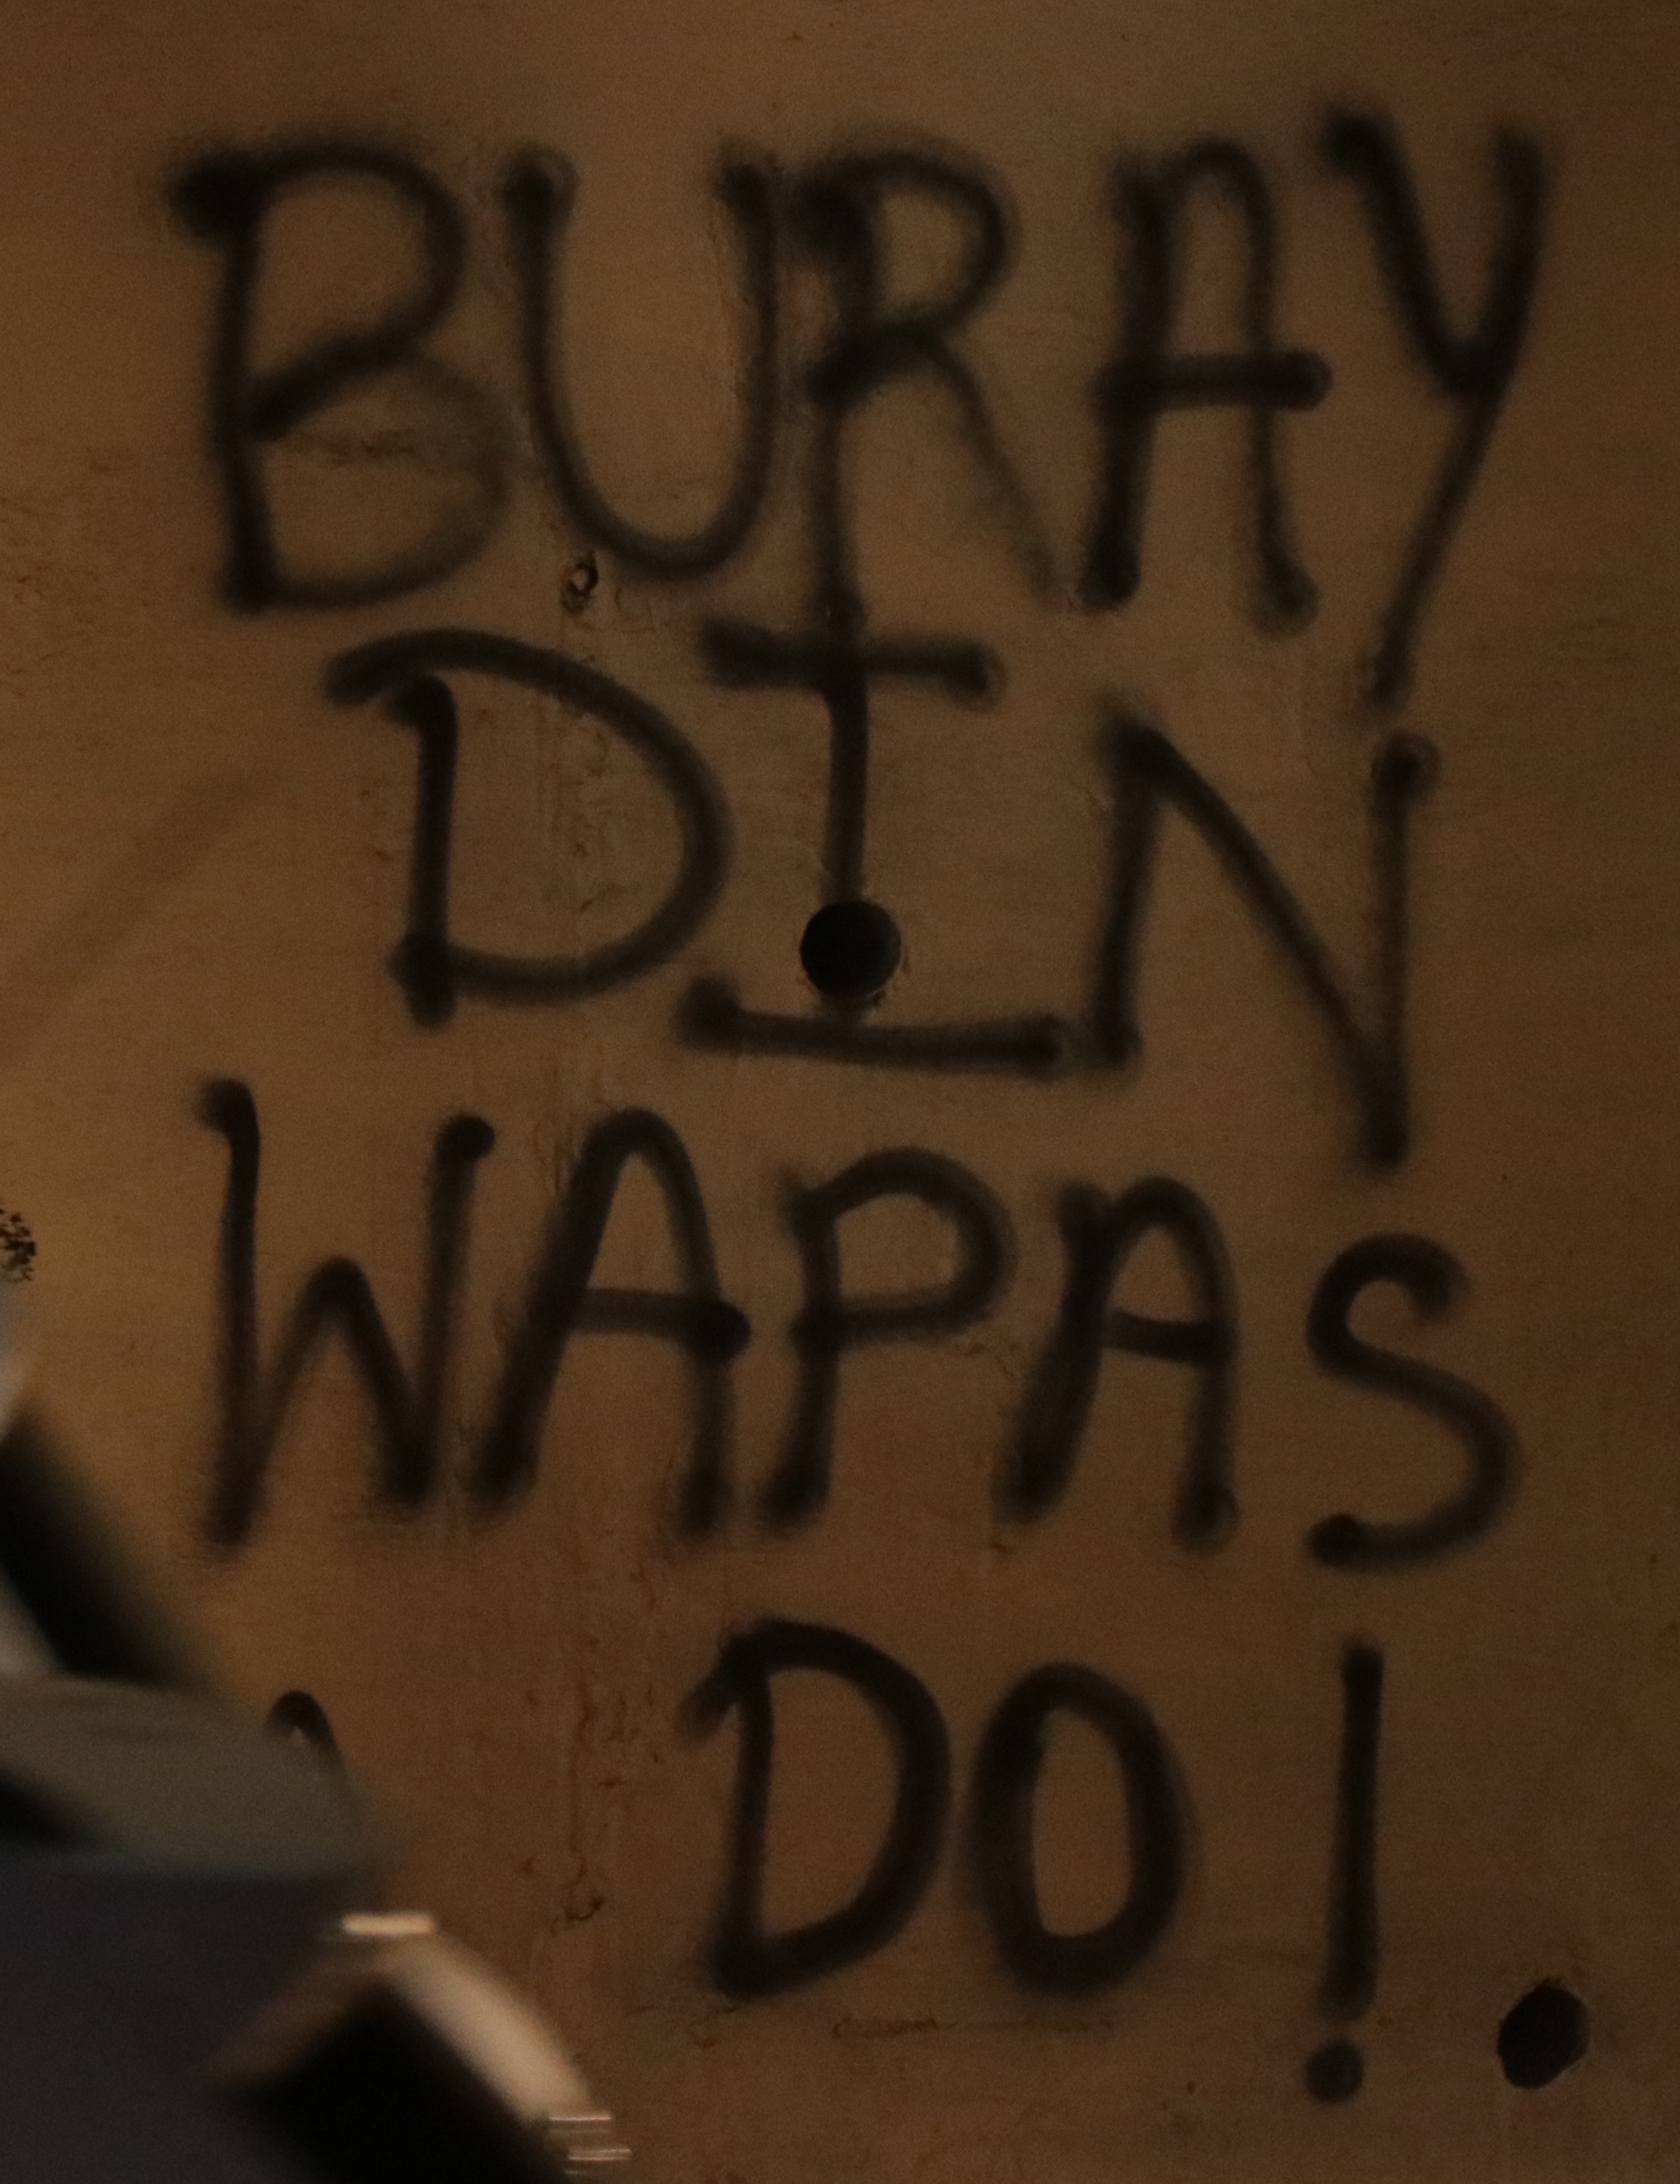 BURAY
DIN
WAPAS
DO!